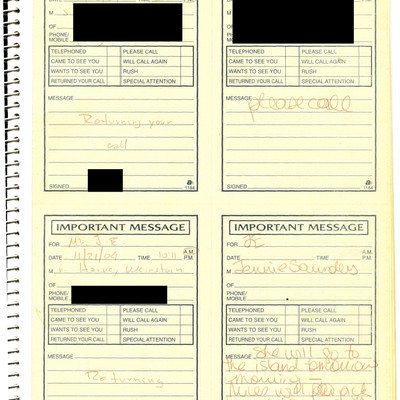 M
OF
PHONE/
MOBILE
TELEPHONED PLEASE CALL
CAME TO SEE YOU WILL CALL AGAIN
WANTS TO SEE YOU RUSH
RETURNED YOUR CALL SPECIAL ATTENTION
MESSAGE
Returning your
call
SIGNED 1184
OF
PHONE/
MOBILE
TELEPHONED PLEASE CALL
CAME TO SEE YOU WILL CALL AGAIN
WANTS TO SEE YOU RUSH
RETURNED YOUR CALL SPECIAL ATTENTION
MESSAGE
please call
SIGNED 1184
IMPORTANT MESSAGE
FOR Mr. J.E
DATE 11/21/04 TIME A.M. P.M.
M r. Harvey Weinstein
OF
PHONE/
MOBILE
TELEPHONED PLEASE CALL
CAME TO SEE YOU WILL CALL AGAIN
WANTS TO SEE YOU RUSH
RETURNED YOUR CALL SPECIAL ATTENTION
MESSAGE
Returning
IMPORTANT MESSAGE
FOR JE
DATE TIME A.M. P.M.
M Jennie Saunders
OF
PHONE/
MOBILE
TELEPHONED PLEASE CALL
CAME TO SEE YOU WILL CALL AGAIN
WANTS TO SEE YOU RUSH
RETURNED YOUR CALL SPECIAL ATTENTION
MESSAGE She will go to
the island tomorrow
morning –
will